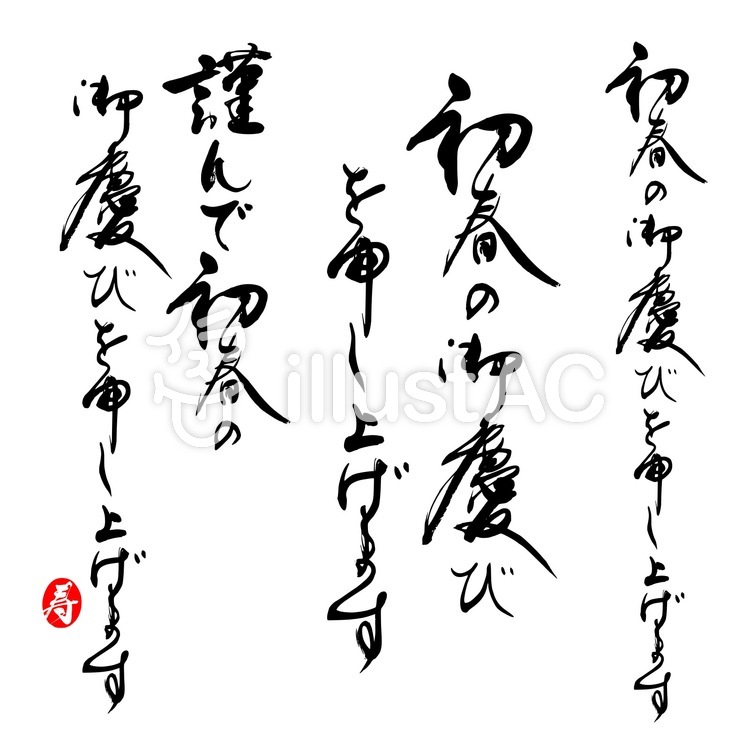 初春の御慶びを申し上げます
初春の御慶び
を申し上げます
謹んで初春の
御慶びを申し上げます
寿
illustAC